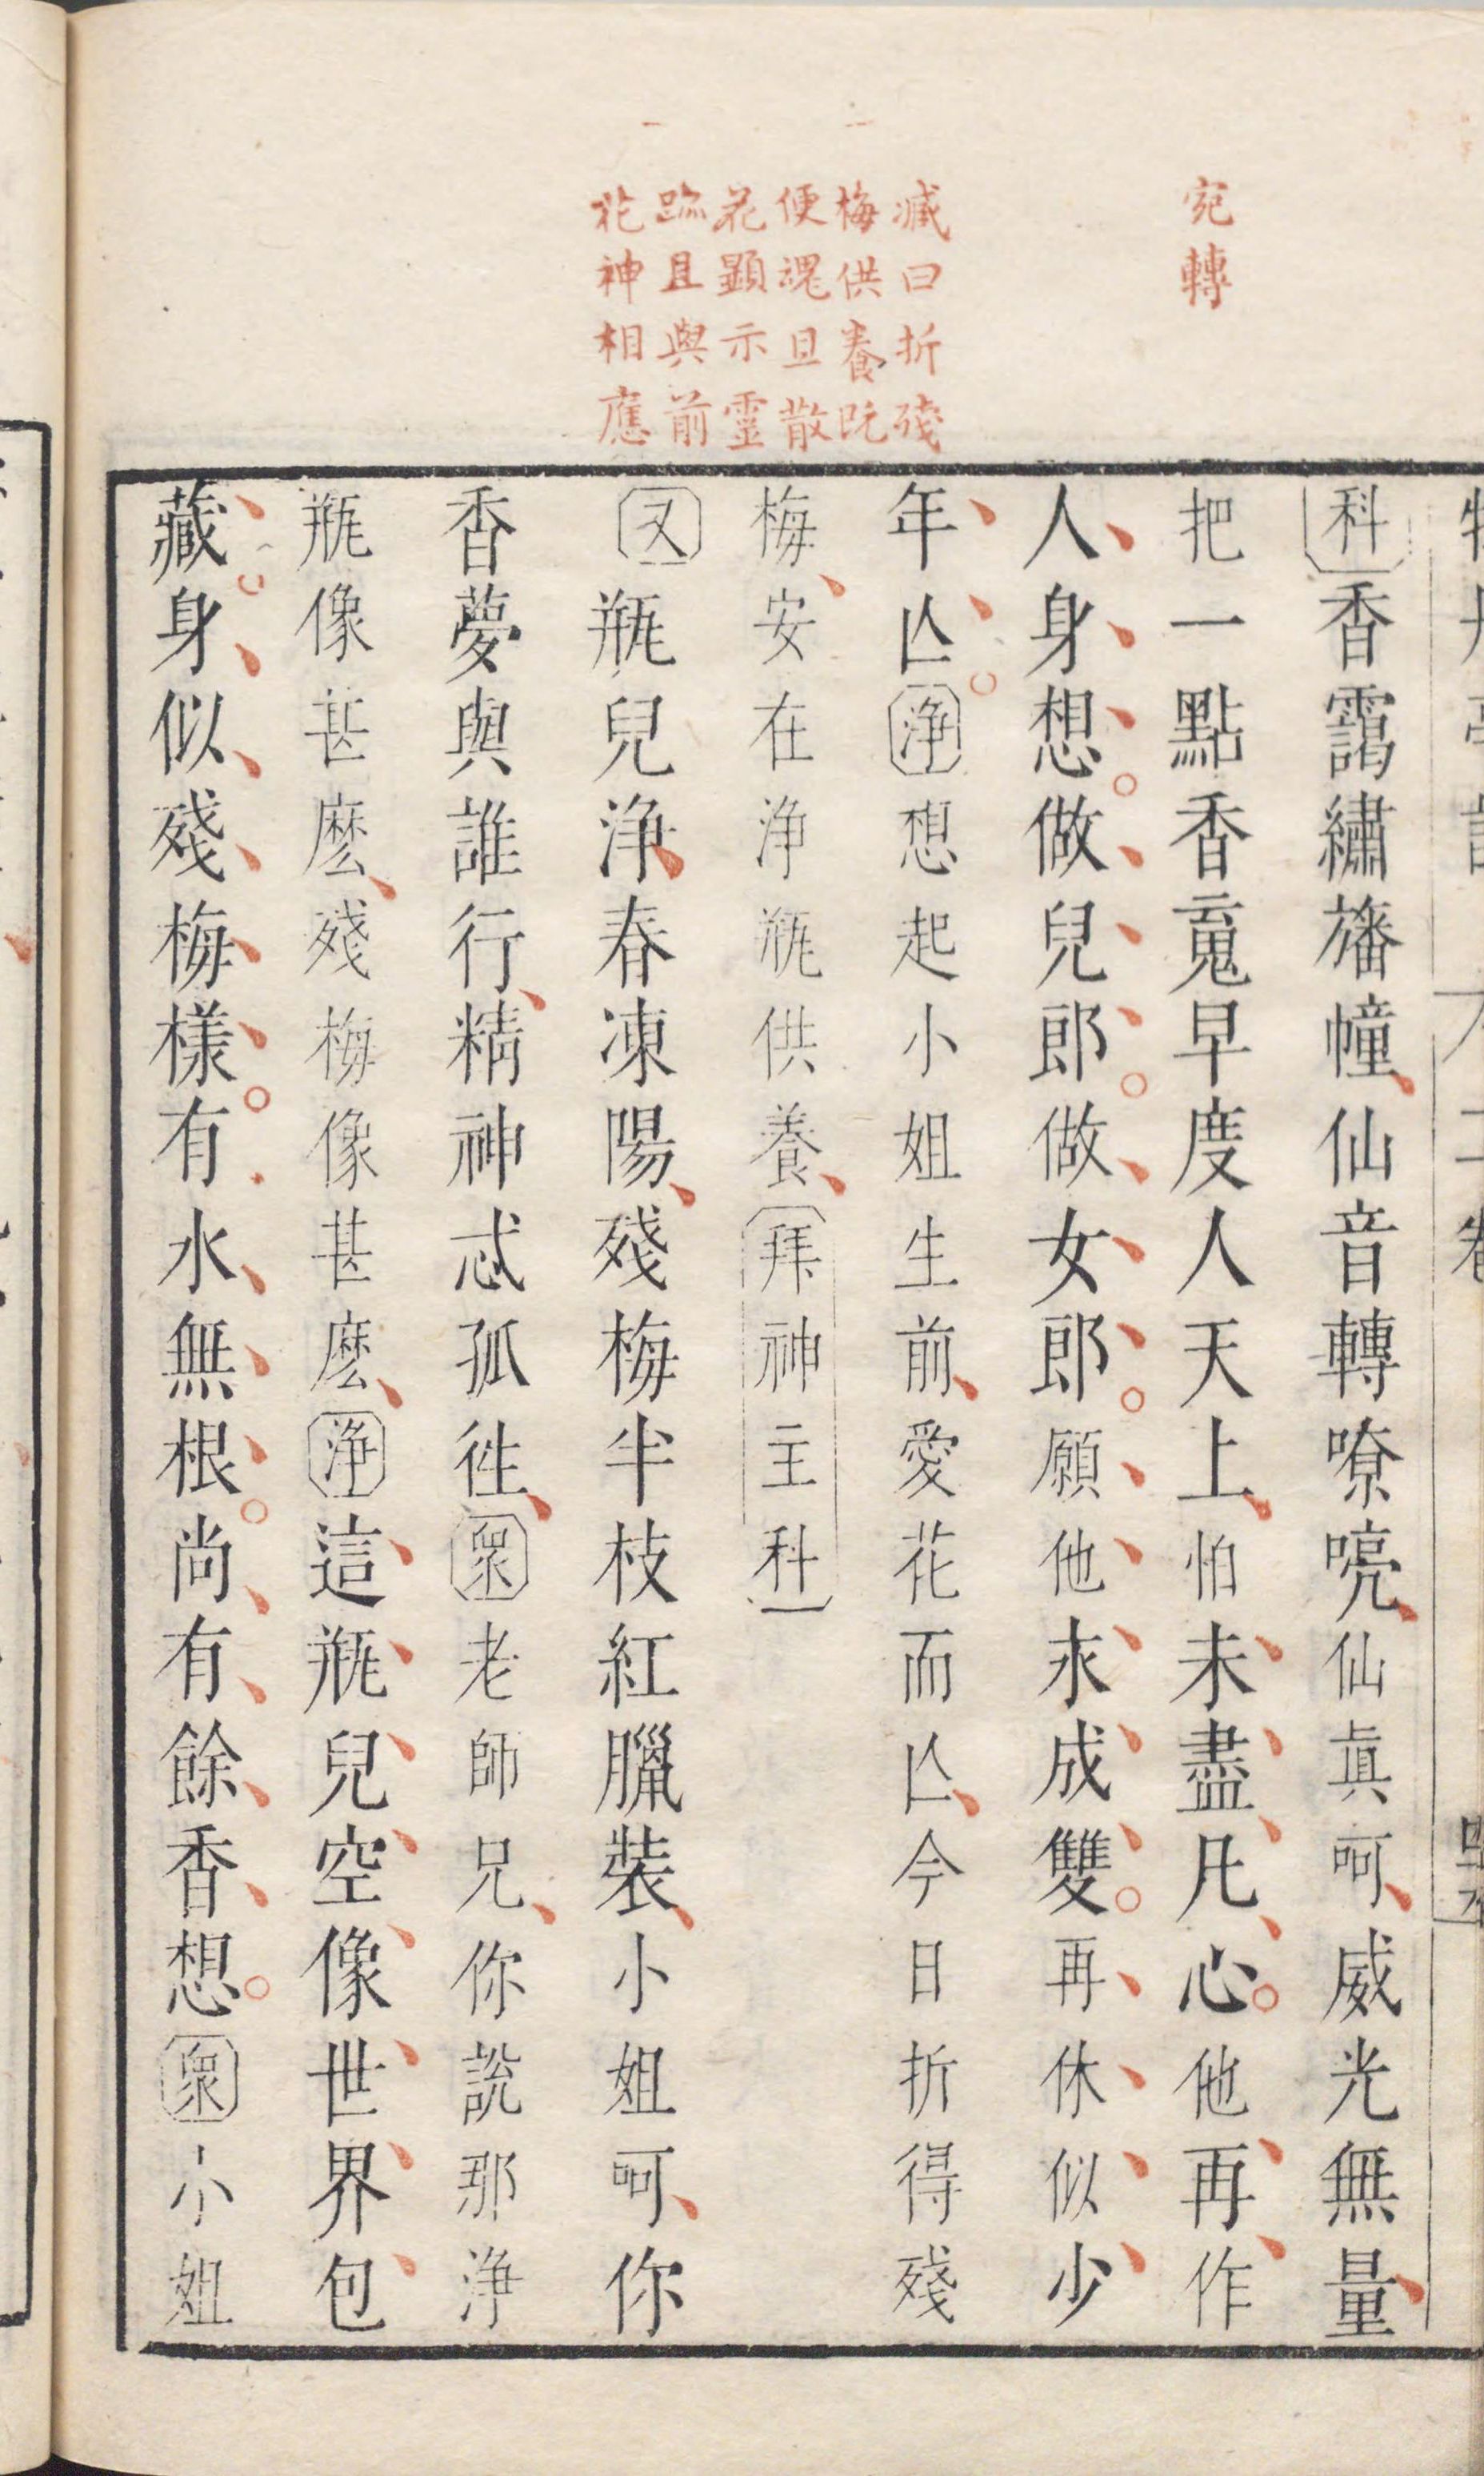 宛轉
臧曰折殘
梅供養旣
便魂且散
花顯示靈
跡且與前
花神相應
科香靄繡旛幢仙音轉嘹喨仙眞呵威光無量
把一點香䰟早度人天上怕未盡凡心他再作
人身想做兒郎做女郎願他永成雙再休似少
年亾淨想起小姐生前愛花而亾今日折得殘
梅安在淨瓶供養拜神主科
又瓶兒淨春凍陽殘梅半枝紅臘裝小姐呵你
香夢與誰行精神忒孤徃衆老師兄你說那淨
瓶像甚麽殘梅像甚麽淨這瓶兒空像世界包
藏身似殘梅樣有水無根尚有餘香想衆小姐